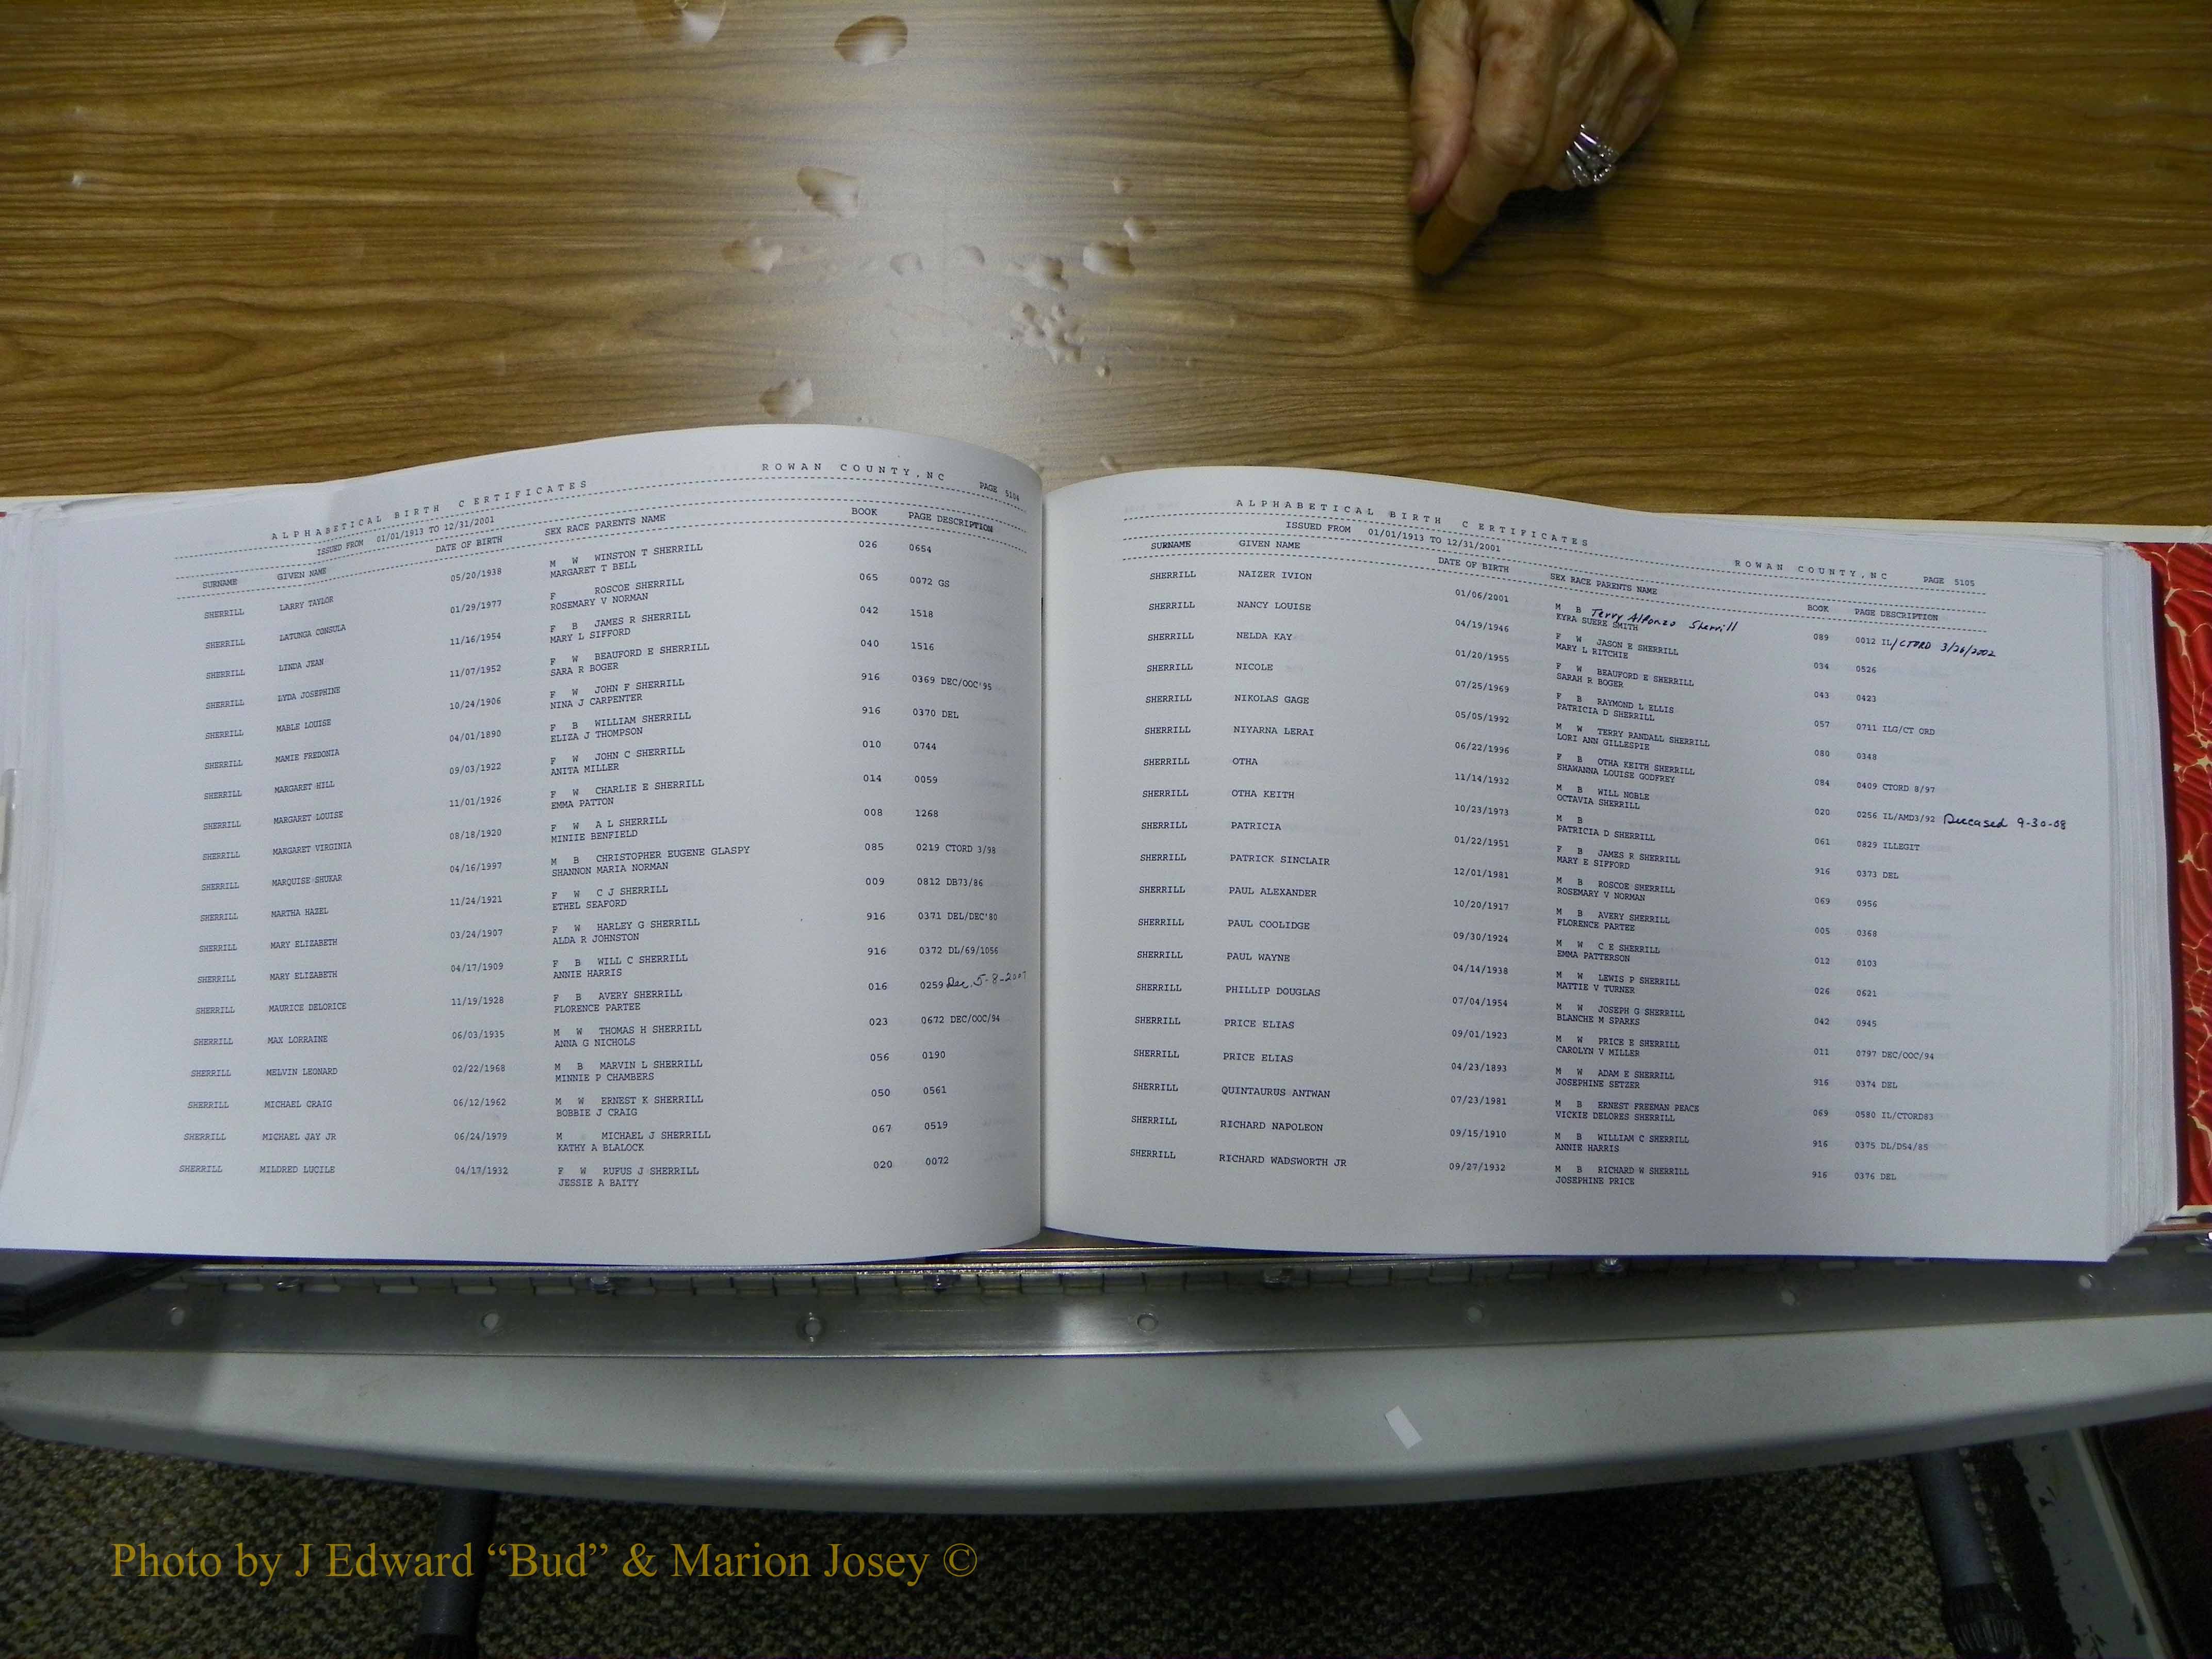 ALPHABETICAL BIRTH C ERTIFICATES ROWAN COUNTY,NC PAGE 5104
ISSUED FROM 01/01/1913 TO 12/31/2001
SURNAME GIVEN NAME DATE OF BIRTH SEX RACE PARENTS NAME BOOK PAGE DESCRIPTION
SHERRILL LARRY TAYLOR 05/20/1938 M W WINSTON T SHERRILL 026 0654
MARGARET T BELL
SHERRILL LATUNGA CONSULA 01/29/1977 F ROSCOE SHERRILL 065 0072 GS
ROSEMARY V NORMAN
SHERRILL LINDA JEAN 11/16/1954 F B JAMES R SHERRILL 042 1518
MARY L SIFFORD
SHERRILL LYDA JOSEPHINE 11/07/1952 F W BEAUFORD E SHERRILL 040 1516
SARA R BOGER
SHERRILL MABLE LOUISE 10/24/1906 F W JOHN F SHERRILL 916 0369 DEC/OOC'95
NINA J CARPENTER
SHERRILL MAMIE FREDONIA 04/01/1890 F B WILLIAM SHERRILL 916 0370 DEL
ELIZA J THOMPSON
SHERRILL MARGARET HILL 09/03/1922 F W JOHN C SHERRILL 010 0744
ANITA MILLER
SHERRILL MARGARET LOUISE 11/01/1926 F W CHARLIE E SHERRILL 014 0059
EMMA PATTON
SHERRILL MARGARET VIRGINIA 08/18/1920 F W A L SHERRILL 008 1268
MINIIE BENFIELD
SHERRILL MARQUISE SHUKAR 04/16/1997 M B CHRISTOPHER EUGENE GLASPY 085 0219 CTORD 3/98
SHANNON MARIA NORMAN
SHERRILL MARTHA HAZEL 11/24/1921 F W C J SHERRILL 009 0812 DB73/86
ETHEL SEAFORD
SHERRILL MARY ELIZABETH 03/24/1907 F W HARLEY G SHERRILL 916 0371 DEL/DEC'80
ALDA R JOHNSTON
SHERRILL MARY ELIZABETH 04/17/1909 F B WILL C SHERRILL 916 0372 DL/69/1056
ANNIE HARRIS
SHERRILL MAURICE DELORICE 11/19/1928 F B AVERY SHERRILL 016 0259 Dec. 5-8-2007
FLORENCE PARTEE
SHERRILL MAX LORRAINE 06/03/1935 M W THOMAS H SHERRILL 023 0672 DEC/OOC/94
ANNA G NICHOLS
SHERRILL MELVIN LEONARD 02/22/1968 M B MARVIN L SHERRILL 056 0190
MINNIE P CHAMBERS
SHERRILL MICHAEL CRAIG 06/12/1962 M W ERNEST K SHERRILL 050 0561
BOBBIE J CRAIG
SHERRILL MICHAEL JAY JR 06/24/1979 M MICHAEL J SHERRILL 067 0519
KATHY A BLALOCK
SHERRILL MILDRED LUCILE 04/17/1932 F W RUFUS J SHERRILL 020 0072
JESSIE A BAITY
ALPHABETICAL BIRTH C ERTIFICATES ROWAN COUNTY,NC PAGE 5105
ISSUED FROM 01/01/1913 TO 12/31/2001
SURNAME GIVEN NAME DATE OF BIRTH SEX RACE PARENTS NAME BOOK PAGE DESCRIPTION
SHERRILL NAIZER IVION 01/06/2001 M B Terry Alfonzo Sherrill 089 0012 IL/CTORD 3/26/2002
KYRA SUERE SMITH
SHERRILL NANCY LOUISE 04/19/1946 F W JASON E SHERRILL 034 0526
MARY L RITCHIE
SHERRILL NELDA KAY 01/20/1955 F W BEAUFORD E SHERRILL 043 0423
SARAH R BOGER
SHERRILL NICOLE 07/25/1969 F B RAYMOND L ELLIS 057 0711 ILG/CT ORD
PATRICIA D SHERRILL
SHERRILL NIKOLAS GAGE 05/05/1992 M W TERRY RANDALL SHERRILL 080 0348
LORI ANN GILLESPIE
SHERRILL NIYARNA LERAI 06/22/1996 F B OTHA KEITH SHERRILL 084 0409 CTORD 8/97
SHAWANNA LOUISE GODFREY
SHERRILL OTHA 11/14/1932 M B WILL NOBLE 020 0256 IL/AMD3/92 Deceased 9-30-08
OCTAVIA SHERRILL
SHERRILL OTHA KEITH 10/23/1973 M B 061 0829 ILLEGIT
PATRICIA D SHERRILL
SHERRILL PATRICIA 01/22/1951 F B JAMES R SHERRILL 916 0373 DEL
MARY E SIFFORD
SHERRILL PATRICK SINCLAIR 12/01/1981 M B ROSCOE SHERRILL 069 0956
ROSEMARY V NORMAN
SHERRILL PAUL ALEXANDER 10/20/1917 M B AVERY SHERRILL 005 0368
FLORENCE PARTEE
SHERRILL PAUL COOLIDGE 09/30/1924 M W C E SHERRILL 012 0103
EMMA PATTERSON
SHERRILL PAUL WAYNE 04/14/1938 M W LEWIS P SHERRILL 026 0621
MATTIE V TURNER
SHERRILL PHILLIP DOUGLAS 07/04/1954 M W JOSEPH G SHERRILL 042 0945
BLANCHE M SPARKS
SHERRILL PRICE ELIAS 09/01/1923 M W PRICE E SHERRILL 011 0797 DEC/OOC/94
CAROLYN V MILLER
SHERRILL PRICE ELIAS 04/23/1893 M W ADAM E SHERRILL 916 0374 DEL
JOSEPHINE SETZER
SHERRILL QUINTAURUS ANTWAN 07/23/1981 M B ERNEST FREEMAN PEACE 069 0580 IL/CTORD83
VICKIE DELORES SHERRILL
SHERRILL RICHARD NAPOLEON 09/15/1910 M B WILLIAM C SHERRILL 916 0375 DL/D54/85
ANNIE HARRIS
SHERRILL RICHARD WADSWORTH JR 09/27/1932 M B RICHARD W SHERRILL 916 0376 DEL
JOSEPHINE PRICE
Photo by J Edward “Bud” & Marion Josey ©